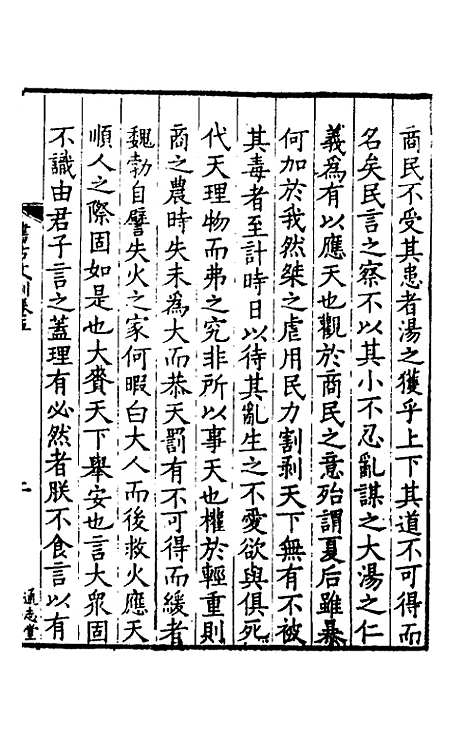 商民不受其患者湯之獲乎上下其道不可得而
名矣民言之察不以其小不忍亂謀之大湯之仁
義爲有以應天也觀於商民之意殆謂夏后雖暴
何加於我然桀之虐用民力割剥天下無有不被
其毒者至計時日以待其亂生之不愛欲與俱死
代天理物而弗之究非所以事天也權於輕重則
商之農時失未爲大而恭天罰有不可得而緩者
魏勃自譬失火之家何暇白大人而後救火應天
順人之際固如是也大賚天下舉安也言大衆固
不識由君子言之蓋理有必然者朕不食言以有
書古文訓卷五
通志堂